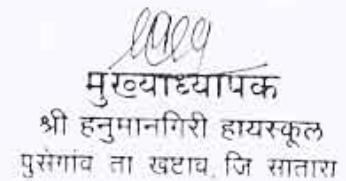 मुख्याध्यापक
श्री हनुमानगिरी हायस्कूल
पुसेगांव ता खटाव, जि सातारा